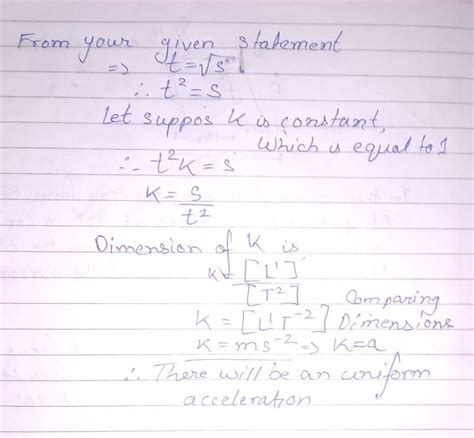 From your given statement
⇒ t=√s
∴ t²=s
Let suppos K is constant,
which is equal to 1
∴ t²K = s
K = s/t²
Dimension of K is
K = [L¹]/[T²]
Comparing
K = [L¹T⁻²] Dimensions
K = ms⁻² ⇒ K=a
∴ There will be an uniform
acceleration